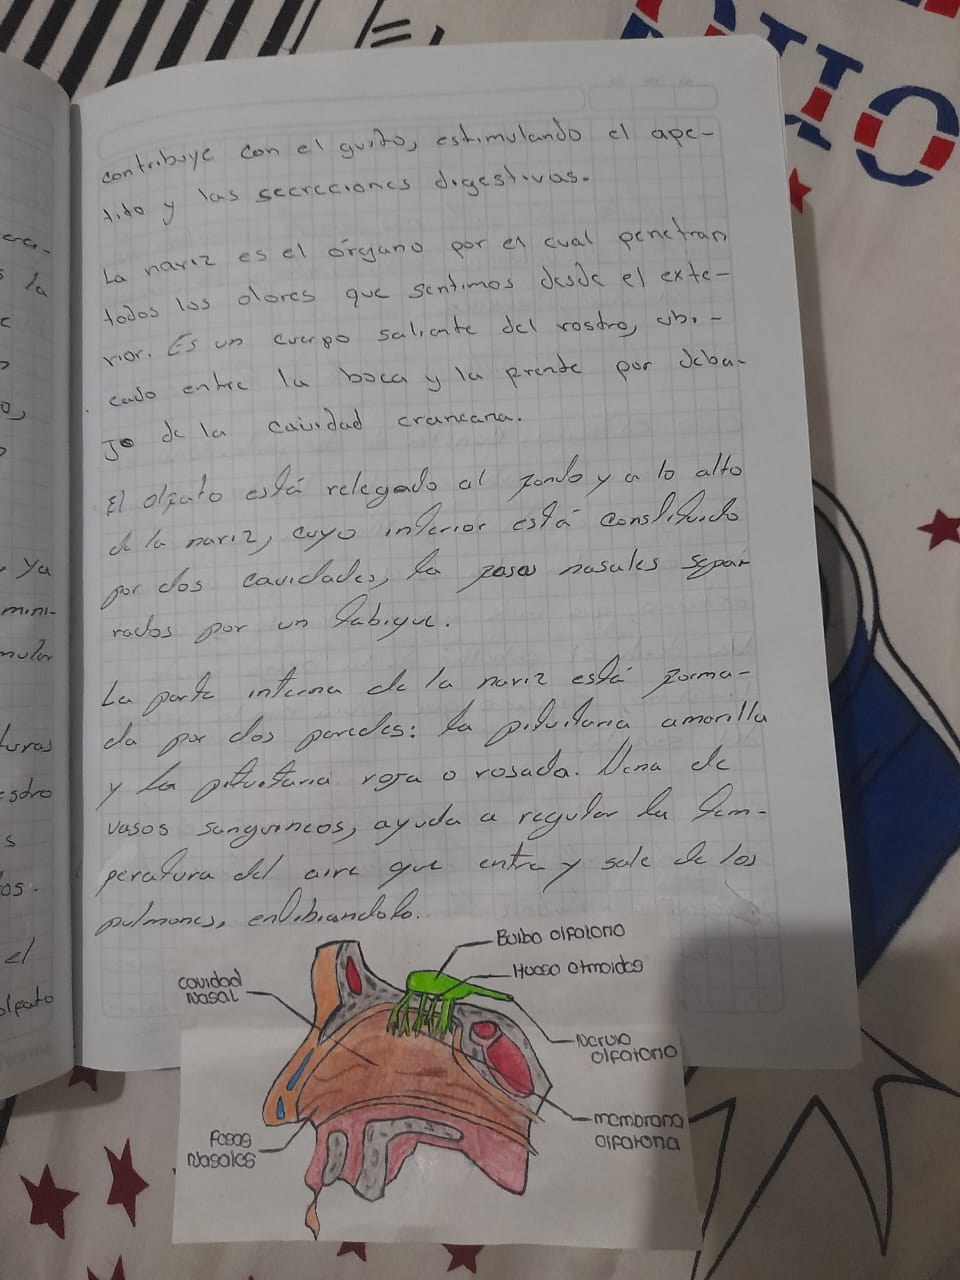 contribuye con el gusto, estimulando el ape-
tito y las secreciones digestivas.
La nariz es el órgano por el cual penetran
todos los olores que sentimos desde el exte-
rior. Es un cuerpo saliente del rostro, ubi-
cado entre la boca y la frente por deba-
jo de la cavidad craneana.
El olfato está relegado al fondo y a lo alto
de la nariz, cuyo interior está constituido
por dos cavidades, la fosas nasales sepa
rados por un tabique.
La parte interna de la nariz está forma-
da por dos paredes: la pituitaria amarilla
y la pituitaria roja o rosada. Llena de
vasos sanguineos, ayuda a regular la tem-
peratura del aire que entra y sale de los
pulmones, entibiandolo.
Bulbo olfatorio
Hueso etmoides
cavidad
Nasal
Nervio
olfatorio
membrana
olfatoria
Fosas
Nasales
la
ya
mini-
s
el
olfato